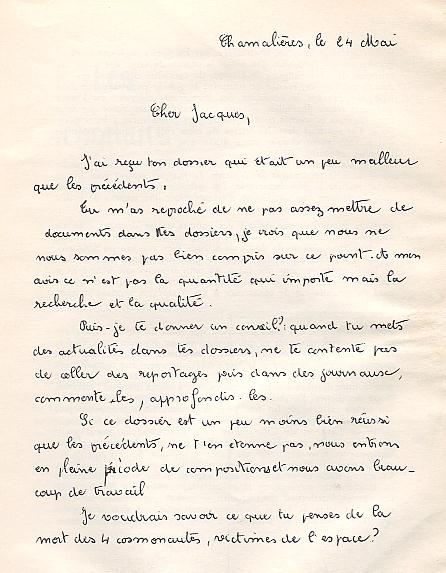 Chamalières, le 24 Mai
Cher Jacques,
J'ai reçu ton dossier qui était un peu meilleur
que les précédents.
Tu m'as reproché de ne pas assez mettre de
documents dans tes dossiers, je crois que nous ne
nous sommes pas bien compris sur ce point. A mon
avis ce n'est pas la quantité qui importe mais la
recherche et la qualité.
Puis-je te donner un conseil ? : quand tu mets
des actualités dans tes dossiers, ne te contente pas
de coller des reportages pris dans des journaux,
commente-les, approfondis-les.
Si ce dossier est un peu moins bien réussi
que les précédents, ne t'en étonne pas, nous entrions
en pleine période de compositions et nous avons beau-
coup de travail
Je voudrais savoir ce que tu penses de la
mort des 4 cosmonautes, victimes de l'espace ?